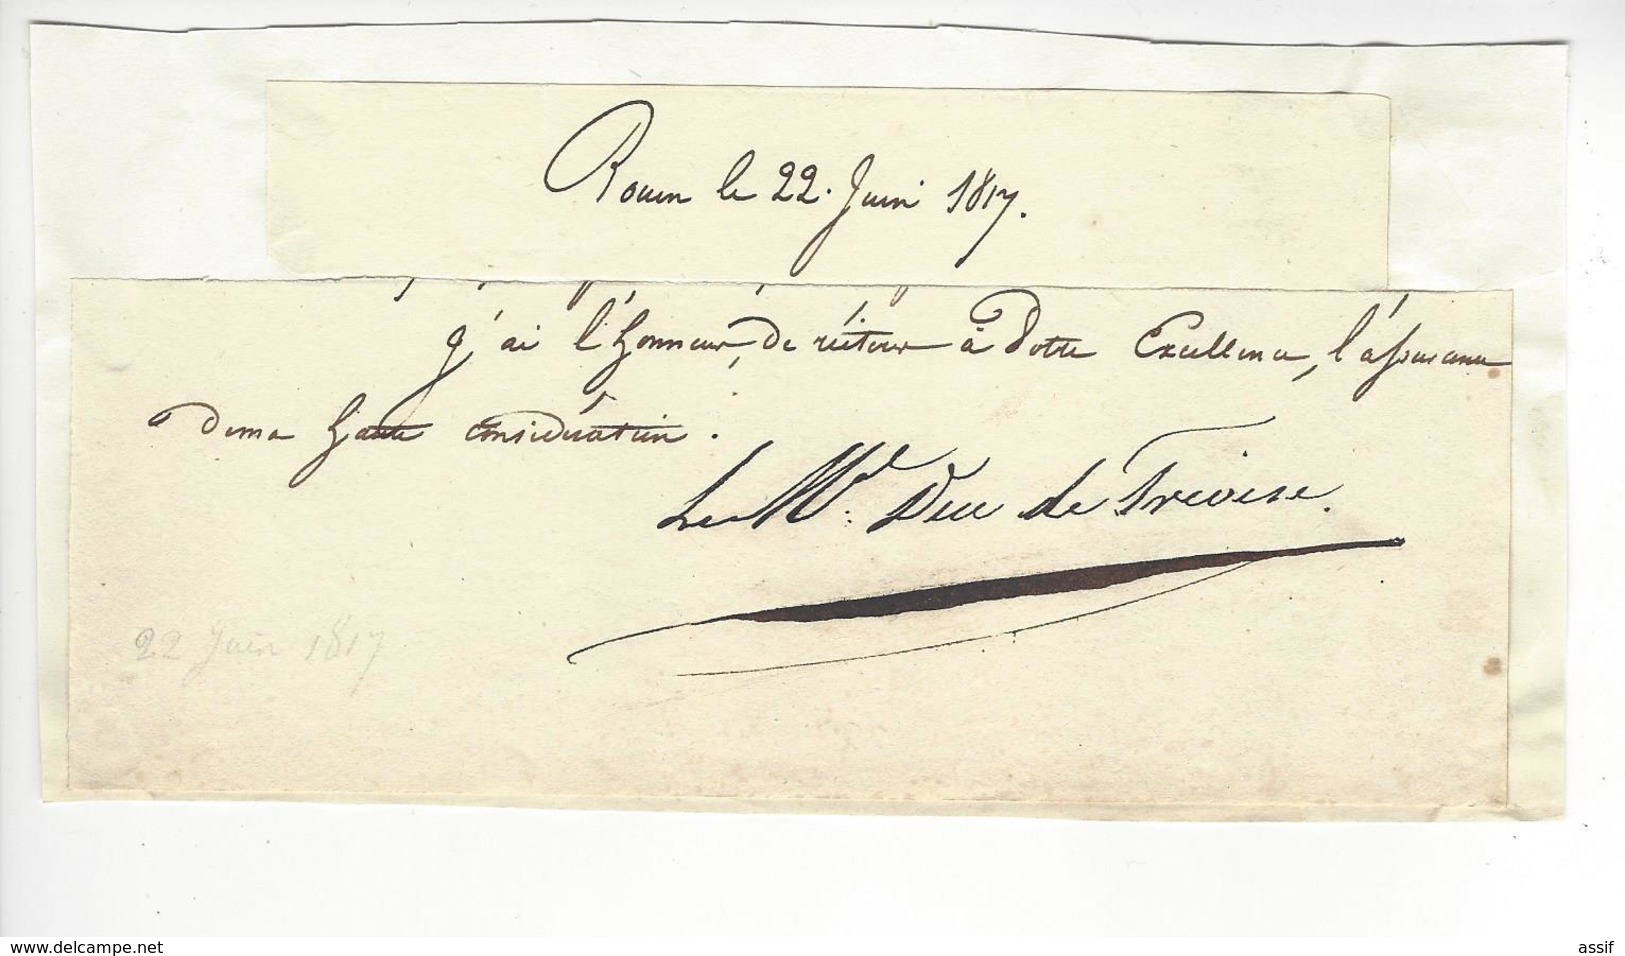 Rouen le 22. Juin 1817.
J'ai l'honneur, de réiterer à Votre Excellence, l'assurance
de ma haute considération.
Le Mal. Duc de Trévise.
22 Juin 1817
www.delcampe.net
assif